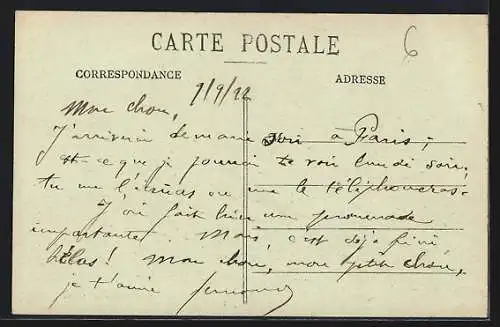 CARTE POSTALE
6
CORRESPONDANCE
ADRESSE
7/9/22
Mon chou,
J'arriverai demain soir à Paris;
est-ce que je pourrai te voir lundi soir,
tu me l'écriras ou me le téléphoneras.
J'ai fait hier une promenade
importante. Mais, c'est déjà fini
hélas! Mon chou, mon ptit chou,
je t'aime